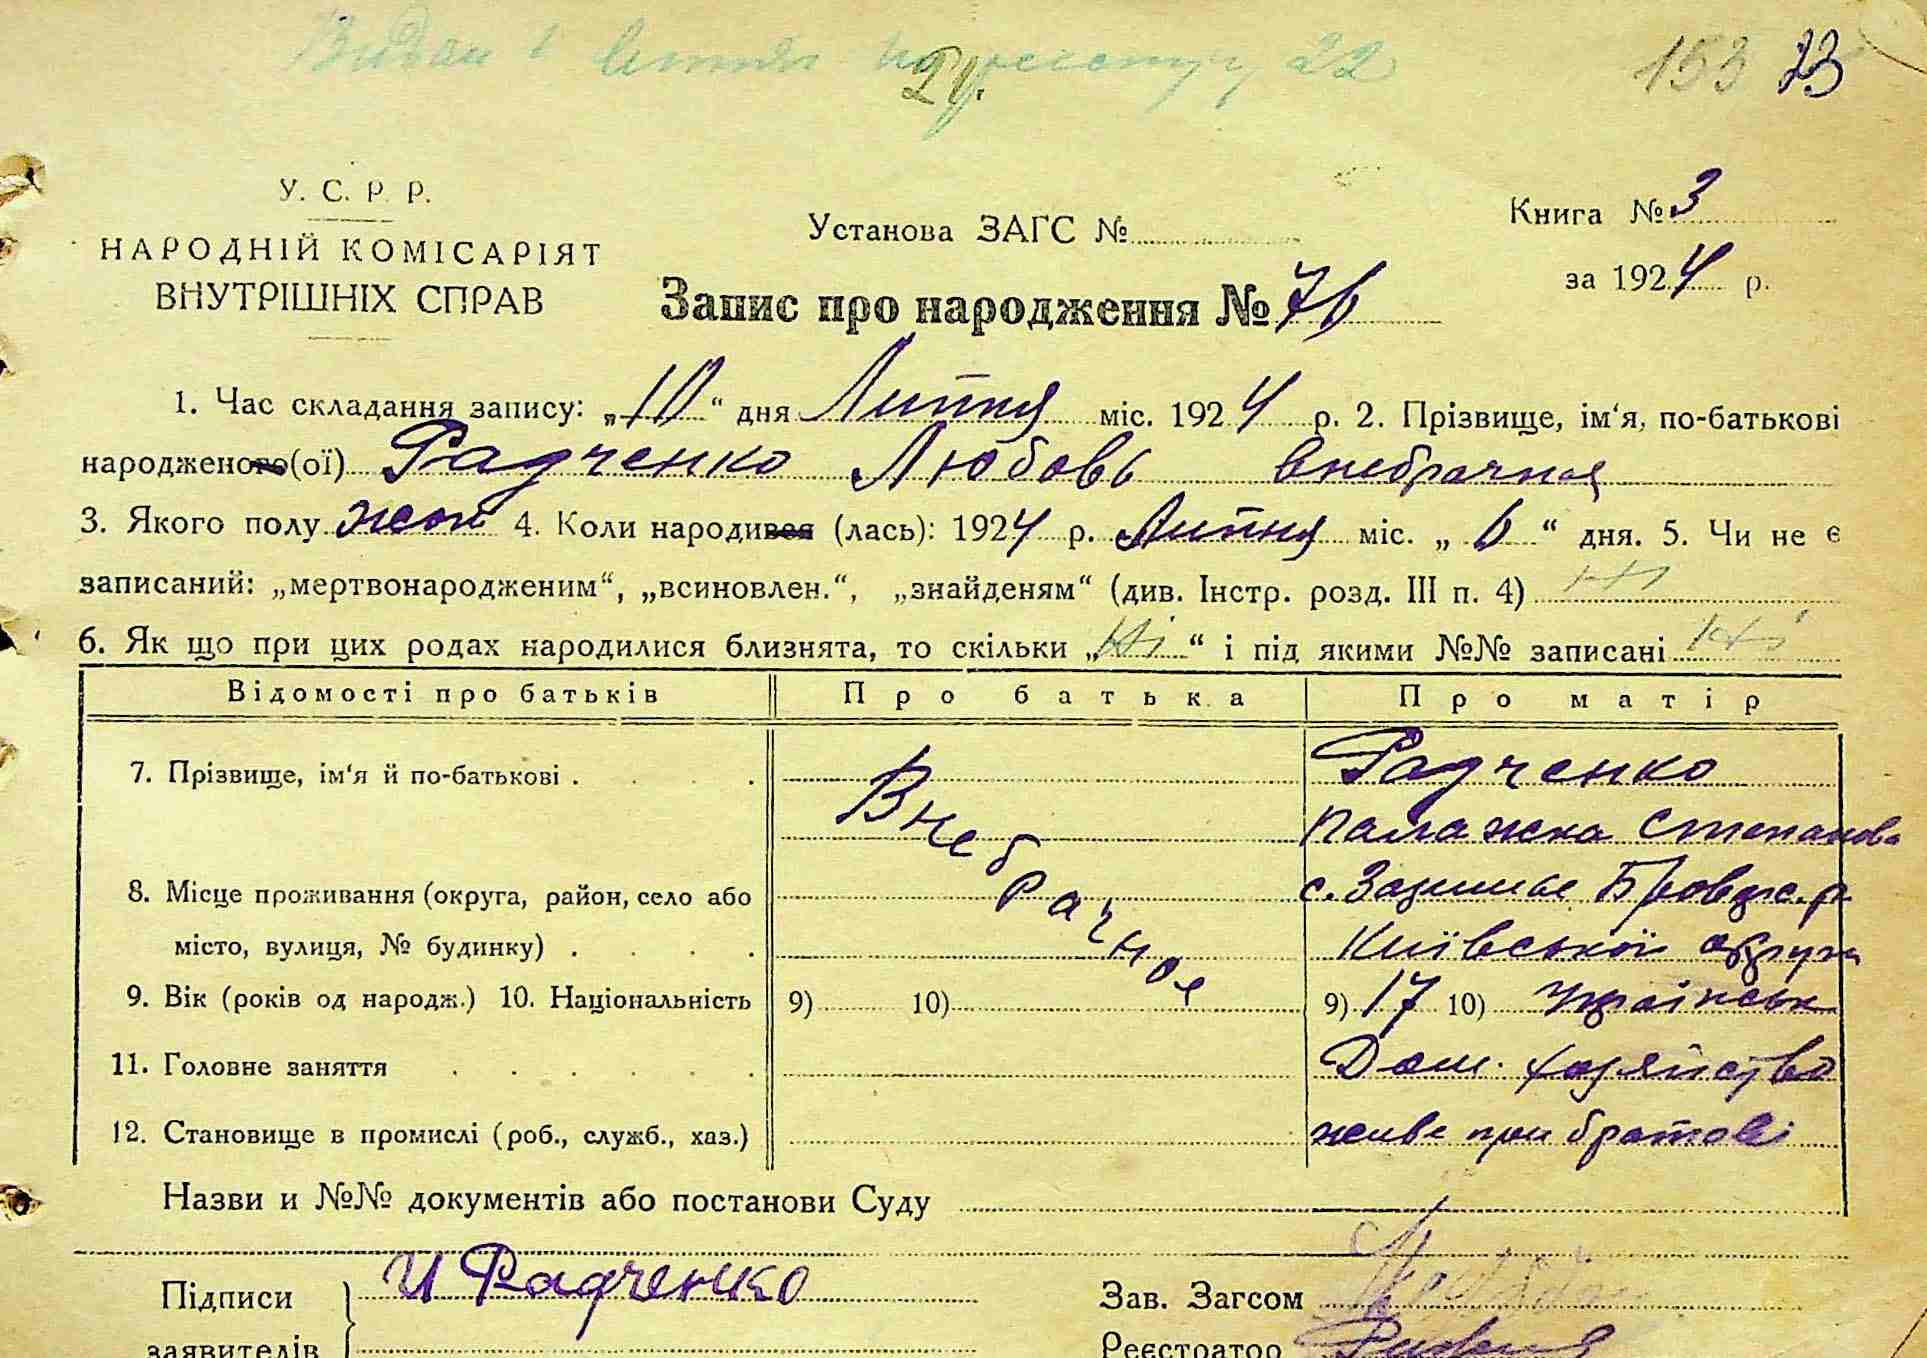 153 23
24.
У. С. Р. Р.
НАРОДНІЙ КОМІСАРІЯТ
ВНУТРІШНІХ СПРАВ
Установа ЗАГС №
Книга № 3
за 1924 р.
Запис про народження № 76
1. Час складання запису: „10“ дня Липня міс. 1924 р. 2. Прізвище, ім‘я, по-батькові
народженого(ої) Радченко Любовь внебрачная
3. Якого полу жен 4. Коли народився (лась): 1924 р. Липня міс. „ 6 “ дня. 5. Чи не є
записаний: „мертвонародженим“, „всиновлен.“, „знайденям“ (див. Інстр. розд. III п. 4) Ні
6. Як що при цих родах народилися близнята, то скільки „Ні“ і під якими №№ записані Ні
Відомості про батьків Про батька Про матір
7. Прізвище, ім‘я й по-батькові . . . . Внебрачное Радченко
Палажка Степанова
8. Місце проживання (округа, район, село або с. Зазимье Бровар. р
місто, вулиця, № будинку) . . . . Київської округи
9. Вік (років од народж.) 10. Національність 9) 10) 9) 17 10) Українськ
11. Головне заняття . . . . . . Дом. хозяйство
12. Становище в промислі (роб., служб., хаз.) живе при братові
Назви и №№ документів або постанови Суду
Підписи } И Радченко Зав. Загсом
заявителів Реєстратор